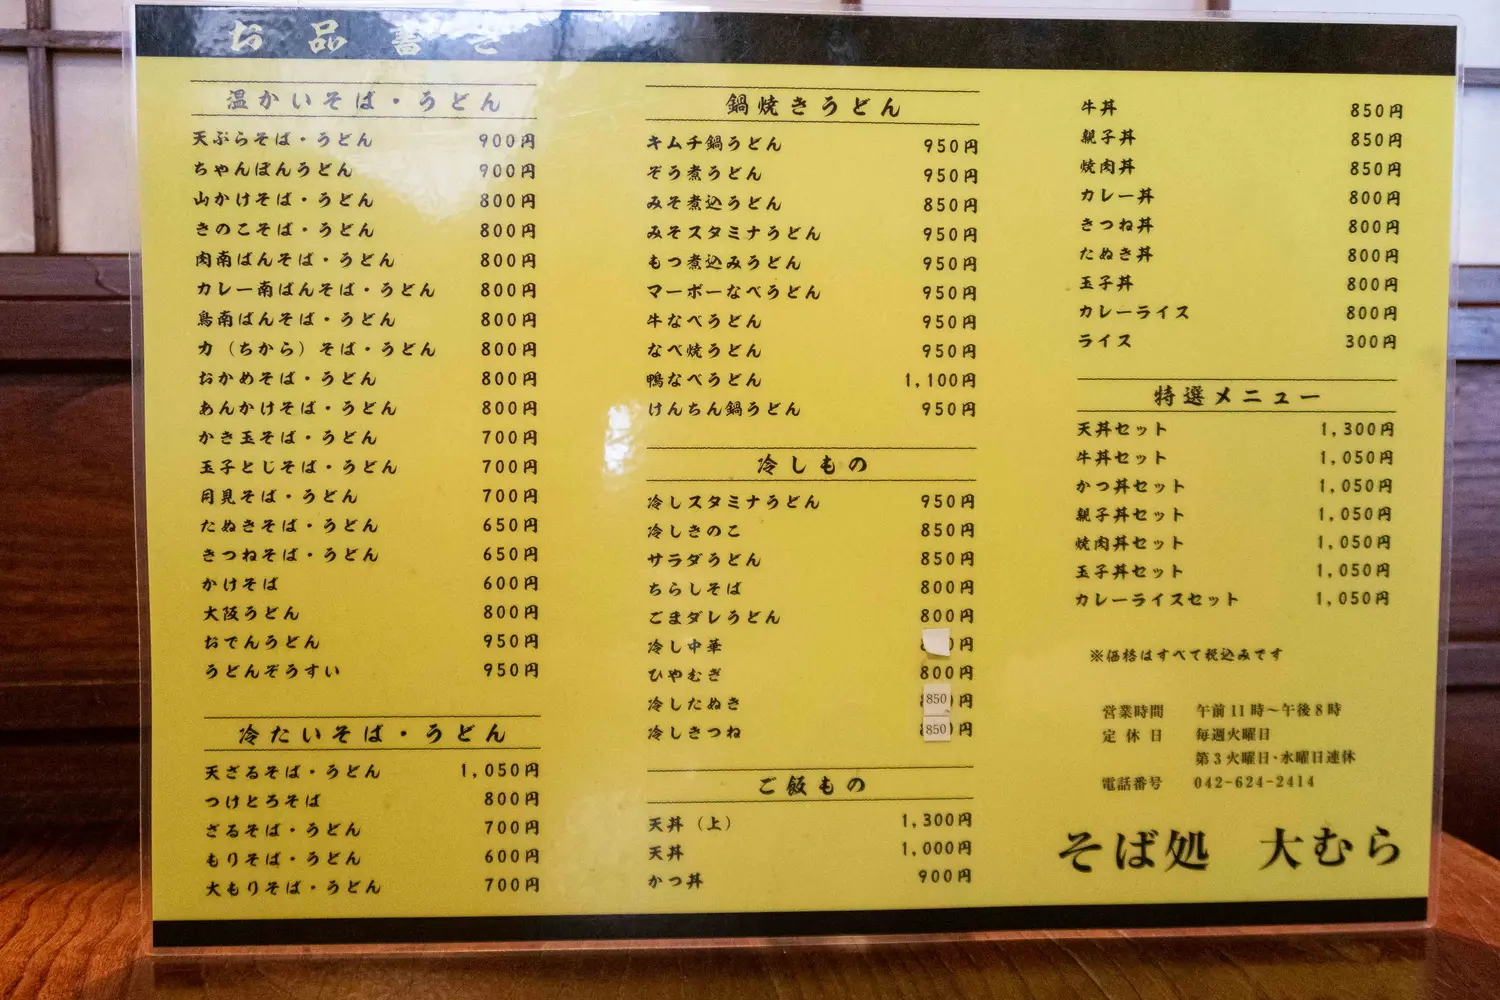 お品書き
温かいそば・うどん
天ぷらそば・うどん 900円
ちゃんぽんうどん 900円
山かけそば・うどん 800円
きのこそば・うどん 800円
肉南ばんそば・うどん 800円
カレー南ばんそば・うどん 800円
鳥南ばんそば・うどん 800円
力（ちから）そば・うどん 800円
おかめそば・うどん 800円
あんかけそば・うどん 800円
かき玉そば・うどん 700円
玉子とじそば・うどん 700円
月見そば・うどん 700円
たぬきそば・うどん 650円
きつねそば・うどん 650円
かけそば 600円
大阪うどん 800円
おでんうどん 950円
うどんぞうすい 950円
冷たいそば・うどん
天ざるそば・うどん 1,050円
つけとろそば 800円
ざるそば・うどん 700円
もりそば・うどん 600円
大もりそば・うどん 700円
鍋焼きうどん
キムチ鍋うどん 950円
ぞう煮うどん 950円
みそ煮込うどん 850円
みそスタミナうどん 950円
もつ煮込みうどん 950円
マーボーなべうどん 950円
牛なべうどん 950円
なべ焼うどん 950円
鴨なべうどん 1,100円
けんちん鍋うどん 950円
冷しもの
冷しスタミナうどん 950円
冷しきのこ 850円
サラダうどん 850円
ちらしそば 800円
ごまダレうどん 800円
冷し中華 円
ひやむぎ 800円
冷したぬき 850円
冷しきつね 850円
ご飯もの
天丼（上） 1,300円
天丼 1,000円
かつ丼 900円
牛丼 850円
親子丼 850円
焼肉丼 850円
カレー丼 800円
きつね丼 800円
たぬき丼 800円
玉子丼 800円
カレーライス 800円
ライス 300円
特選メニュー
天丼セット 1,300円
牛丼セット 1,050円
かつ丼セット 1,050円
親子丼セット 1,050円
焼肉丼セット 1,050円
玉子丼セット 1,050円
カレーライスセット 1,050円
※価格はすべて税込みです
営業時間 午前11時～午後8時
定休日 毎週火曜日
第3火曜日・水曜日連休
電話番号 042-624-2414
そば処 大むら